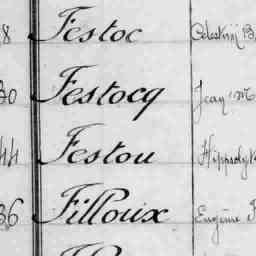 8 Festoc Célestin
30 Festocq Jean M
44 Festou Hippolyt
36 Filloux Eugène